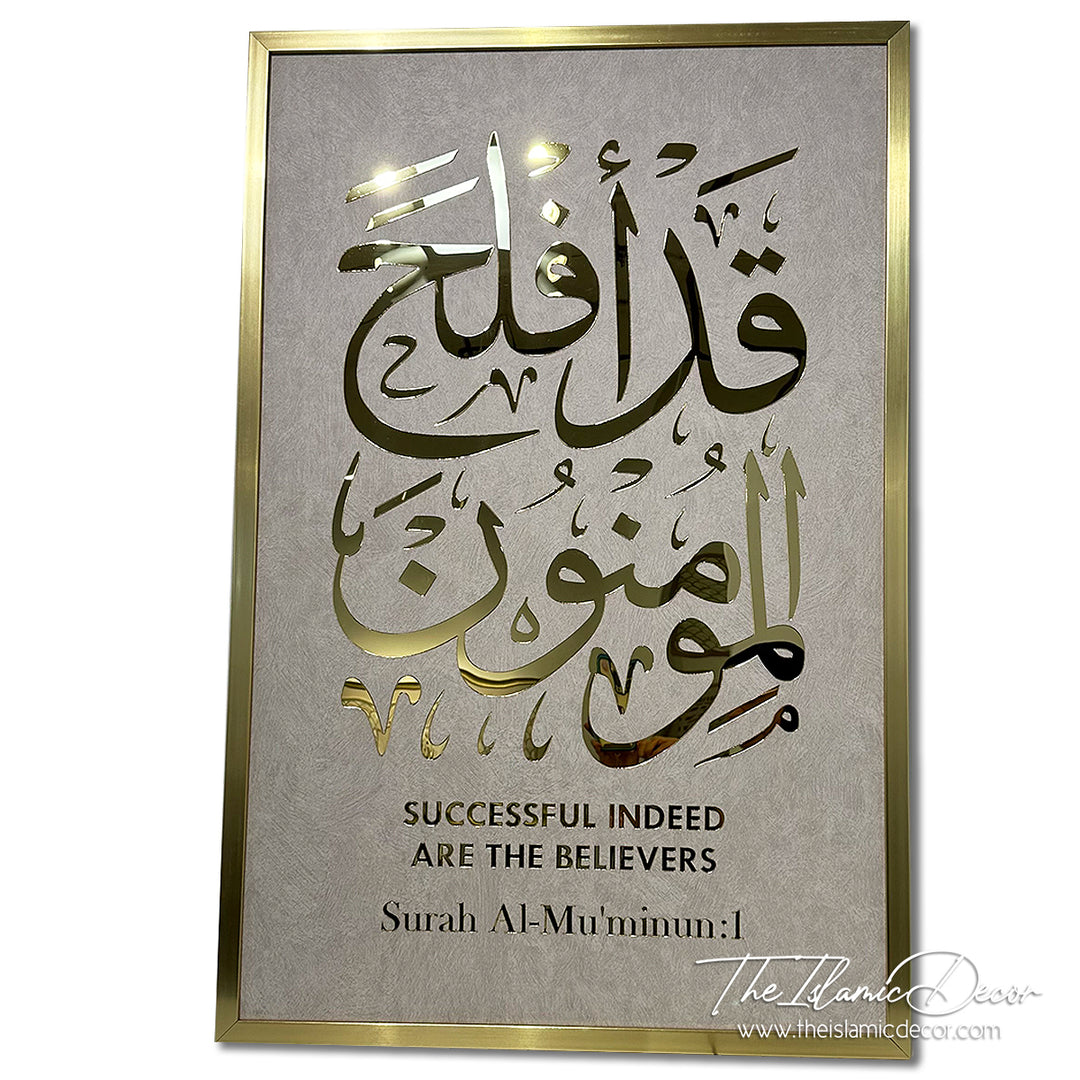 قَدْ أَفْلَحَ
الْمُؤْمِنُونَ
SUCCESSFUL INDEED
ARE THE BELIEVERS
Surah Al-Mu'minun:1
The Islamic Decor
www.theislamicdecor.com